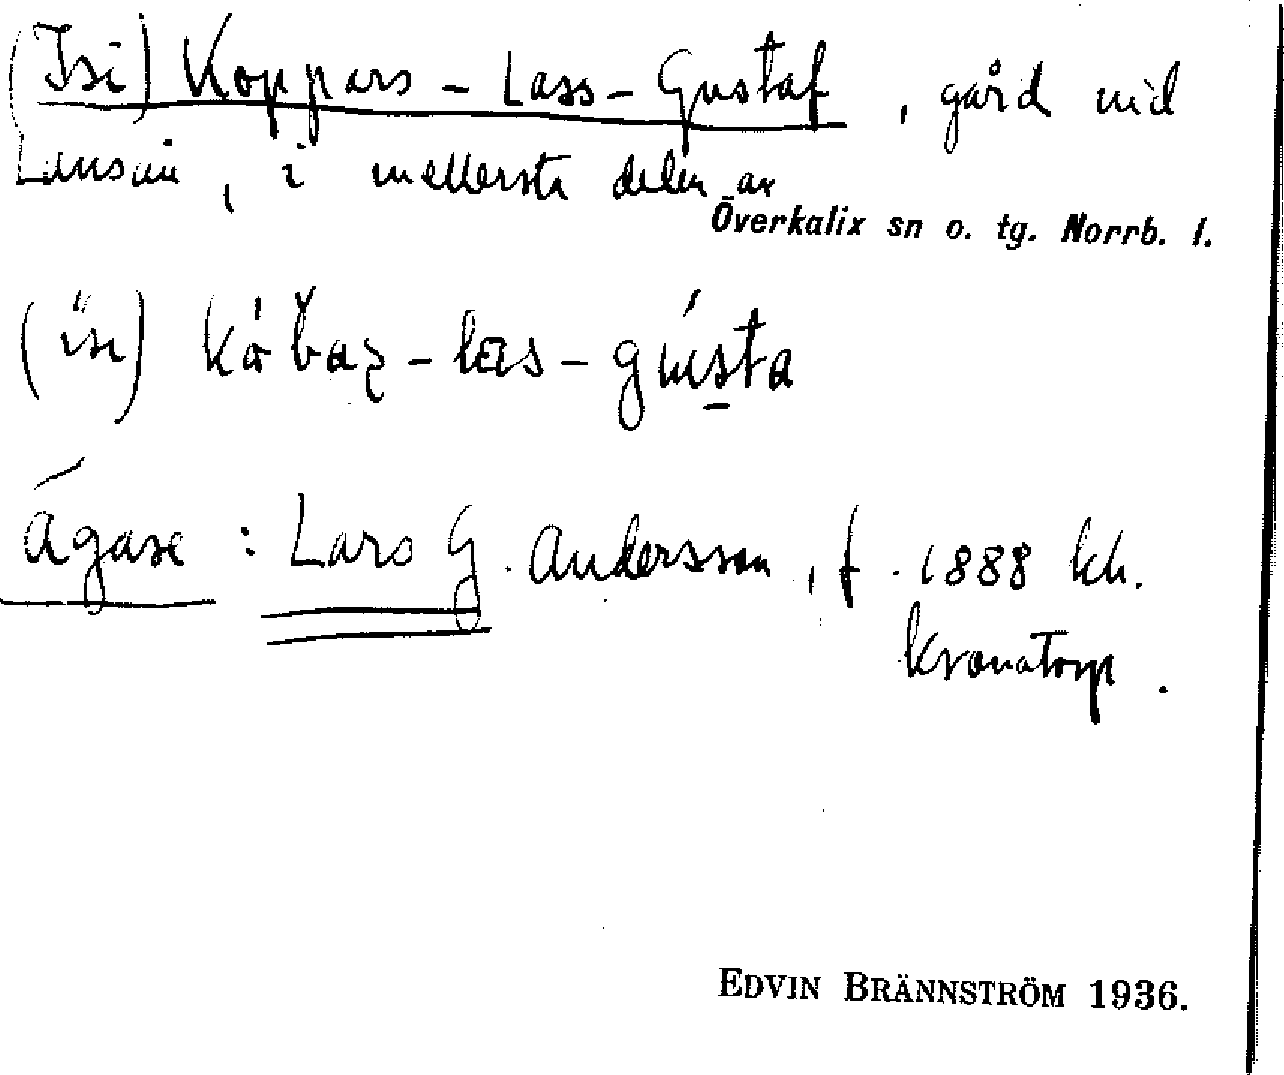 (Isi) Koppars - Lass - Gustaf, gård vid
Lansån, i mellersta delen av
Överkalix sn o. tg. Norrb. l.
Ägare: Lars G. Andersson, f. 1888 kh.
Kronatorp.
EDVIN BRÄNNSTRÖM 1936.